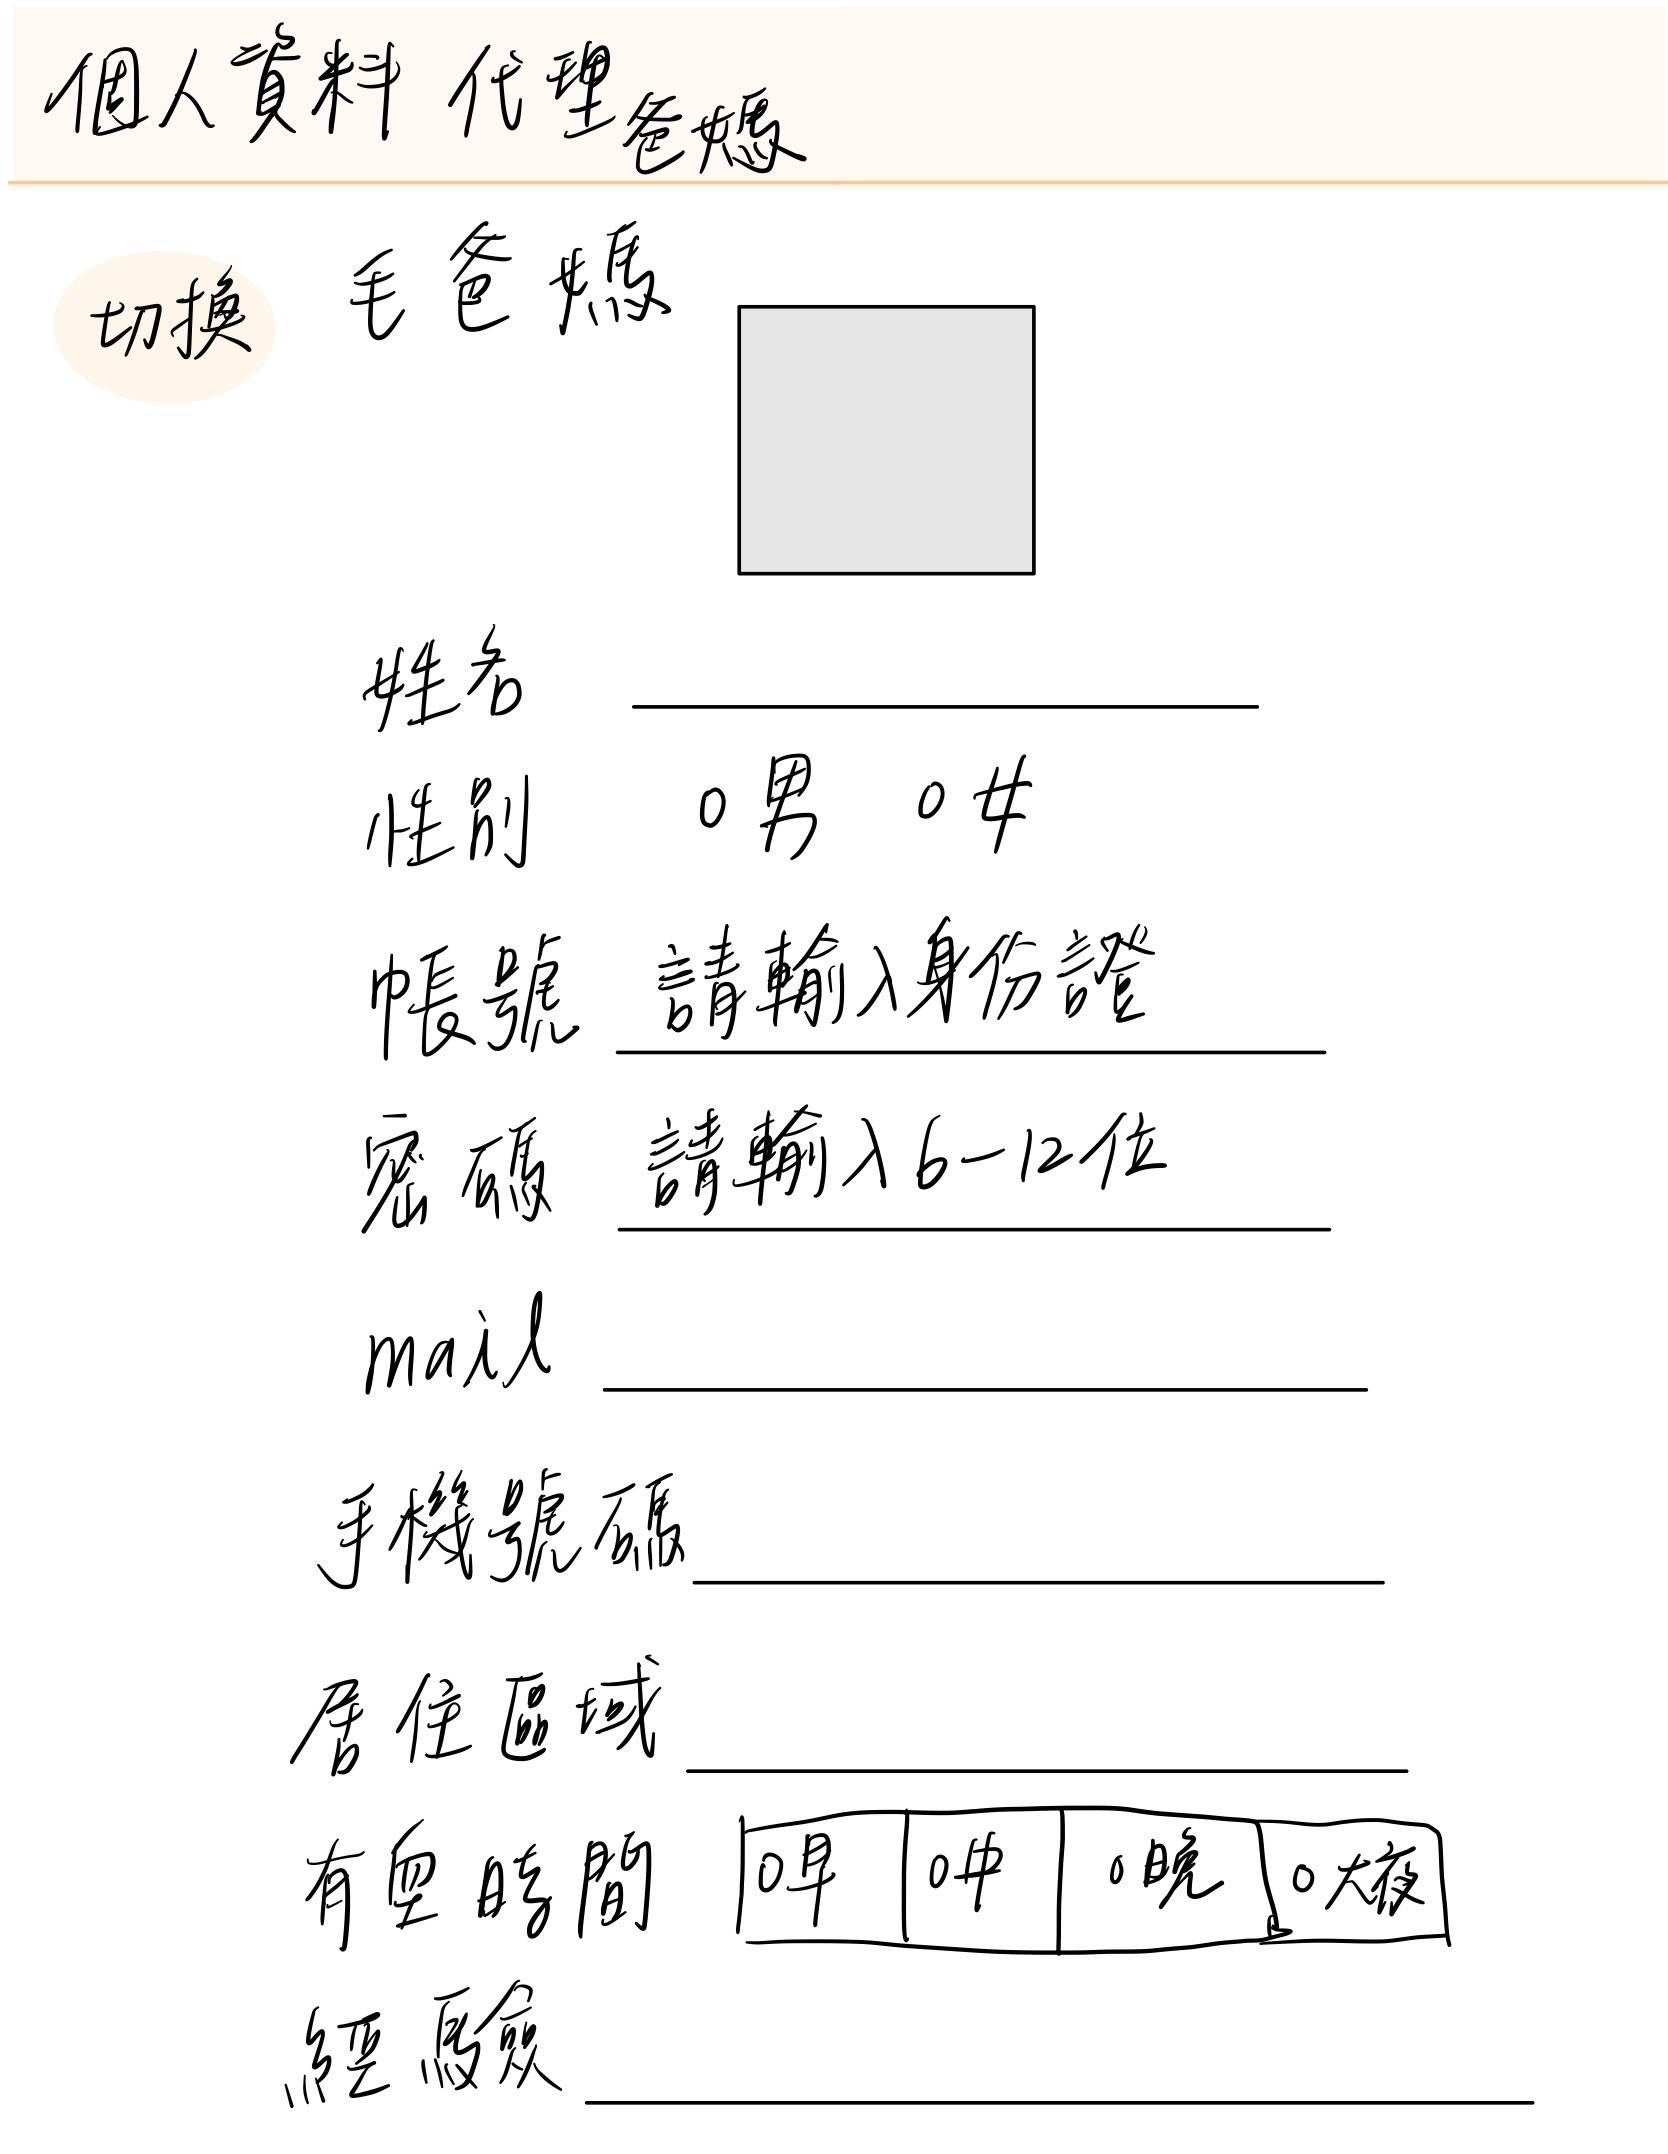 個人資料 代理爸媽
切換 毛爸媽
姓名
性別 O男 O女
帳號 請輸入身份證
密碼 請輸入6-12位
mail
手機號碼
居住區域
有空時間 O早 O中 O晚 O大夜
經驗